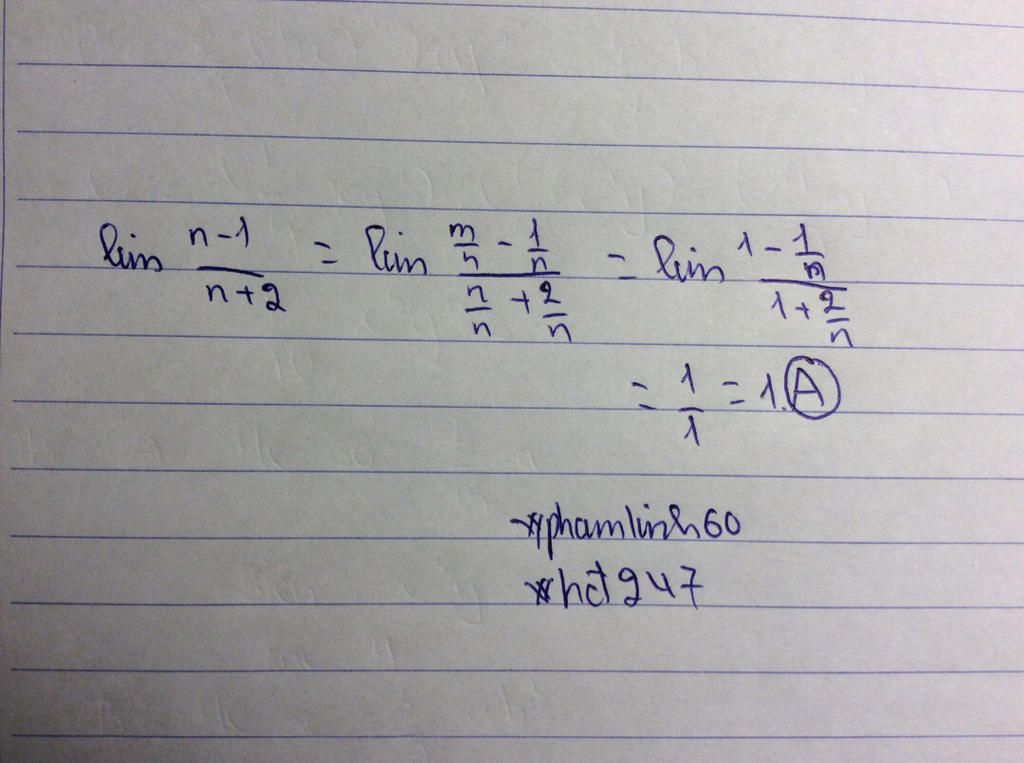 lim n-1/n+2 = lim (m/n - 1/n)/(n/n + 2/n) = lim (1 - 1/n)/(1 + 2/n)
= 1/1 = 1. A
*phamlinh60
*hct247